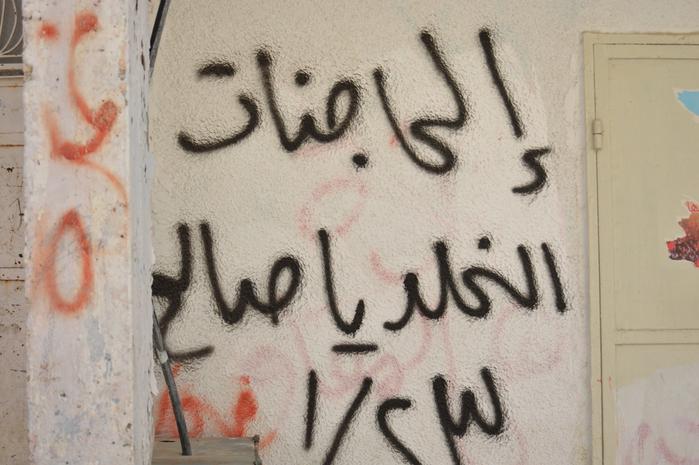 إلى جنات
الخلد يا صالح
١/٢٣